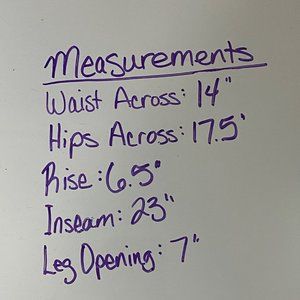 Measurements
Waist Across: 14"
Hips Across: 17.5"
Rise: 6.5"
Inseam: 23"
Leg Opening: 7"